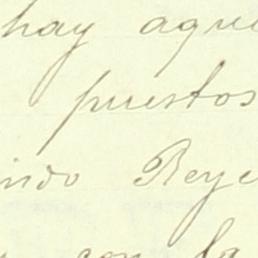 hay aque
puestos
indo Reye
con la